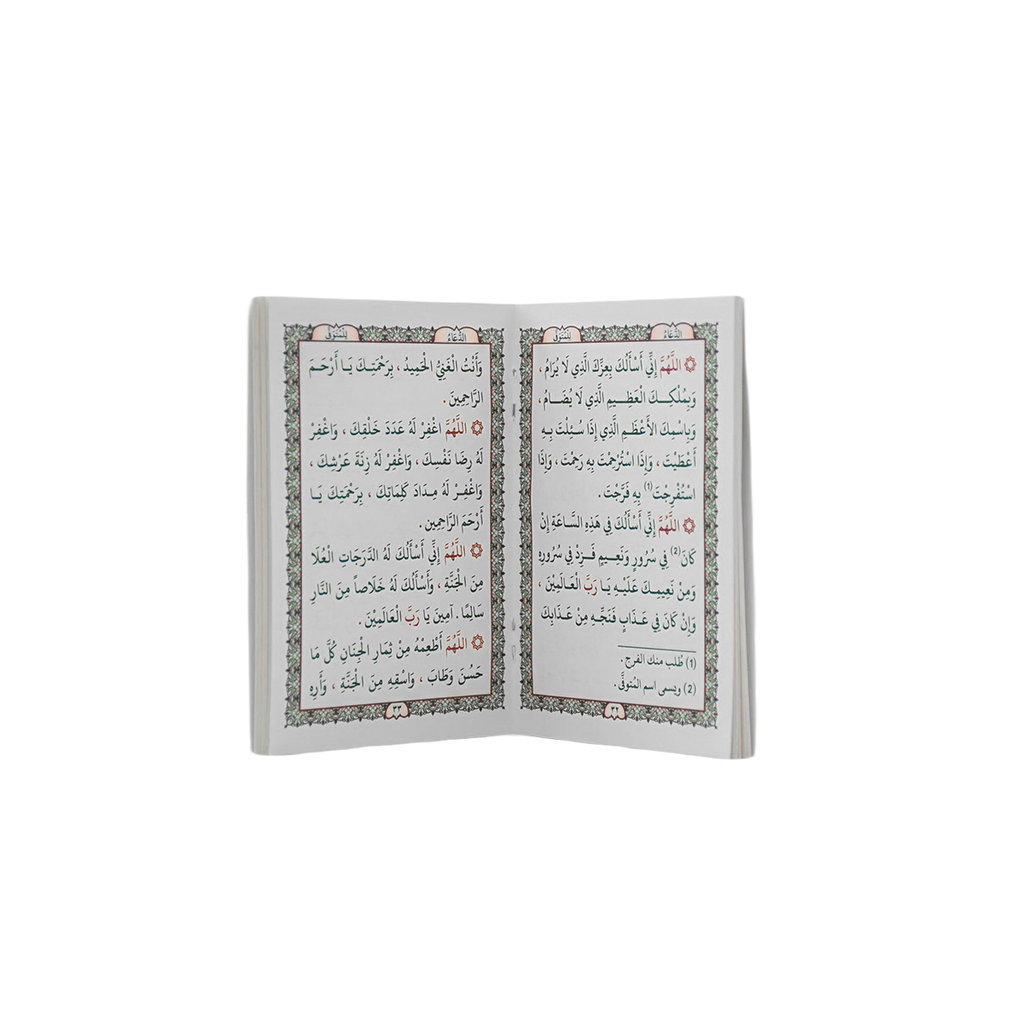 الدُّعَاءُ لِلْمُتَوَفَّى
اللَّهُمَّ إِنِّي أَسْأَلُكَ بِعِزِّكَ الَّذِي لَا يُرَامُ ،
وَبِمُلْكِكَ الْعَظِيمِ الَّذِي لَا يُضَامُ ،
وَبِاسْمِكَ الأَعْظَمِ الَّذِي إِذَا سُئِلْتَ بِهِ
أَعْطَيْتَ ، وَإِذَا اسْتُرْحِمْتَ بِهِ رَحِمْتَ ، وَإِذَا
اسْتُفْرِجْتَ (1) بِهِ فَرَّجْتَ .
اللَّهُمَّ إِنِّي أَسْأَلُكَ فِي هَذِهِ السَّاعَةِ إِنْ
كَانَ (2) فِي سُرُورٍ وَنَعِيمٍ فَزِدْ فِي سُرُورِهِ
وَمِنْ نَعِيمِكَ عَلَيْهِ يَا رَبَّ الْعَالَمِيْنَ ،
وَإِنْ كَانَ فِي عَذَابٍ فَنَجِّهِ مِنْ عَذَابِكَ
(1) طُلب منك الفرج .
(2) ويسمى اسم المُتوفَّى .
٣٢
الدُّعَاءُ لِلْمُتَوَفَّى
وَأَنْتَ الْغَنِيُّ الْحَمِيدُ ، بِرَحْمَتِكَ يَا أَرْحَمَ
الرَّاحِمِينَ .
اللَّهُمَّ اغْفِرْ لَهُ عَدَدَ خَلْقِكَ ، وَاغْفِرْ
لَهُ رِضَا نَفْسِكَ ، وَاغْفِرْ لَهُ زِنَةَ عَرْشِكَ ،
وَاغْفِرْ لَهُ مِدَادَ كَلِمَاتِكَ ، بِرَحْمَتِكَ يَا
أَرْحَمَ الرَّاحِمِين .
اللَّهُمَّ إِنِّي أَسْأَلُكَ لَهُ الدَّرَجَاتِ الْعُلَا
مِنَ الْجَنَّةِ ، وَأَسْأَلُكَ لَهُ خَلَاصاً مِنَ النَّارِ
سَالِمًا . آمِينَ يَا رَبَّ الْعَالَمِيْنَ .
اللَّهُمَّ أَطْعِمْهُ مِنْ ثِمَارِ الْجِنَانِ كُلَّ مَا
حَسُنَ وَطَابَ ، وَاسْقِهِ مِنَ الْجَنَّةِ ، وَأَرِهِ
٣٣